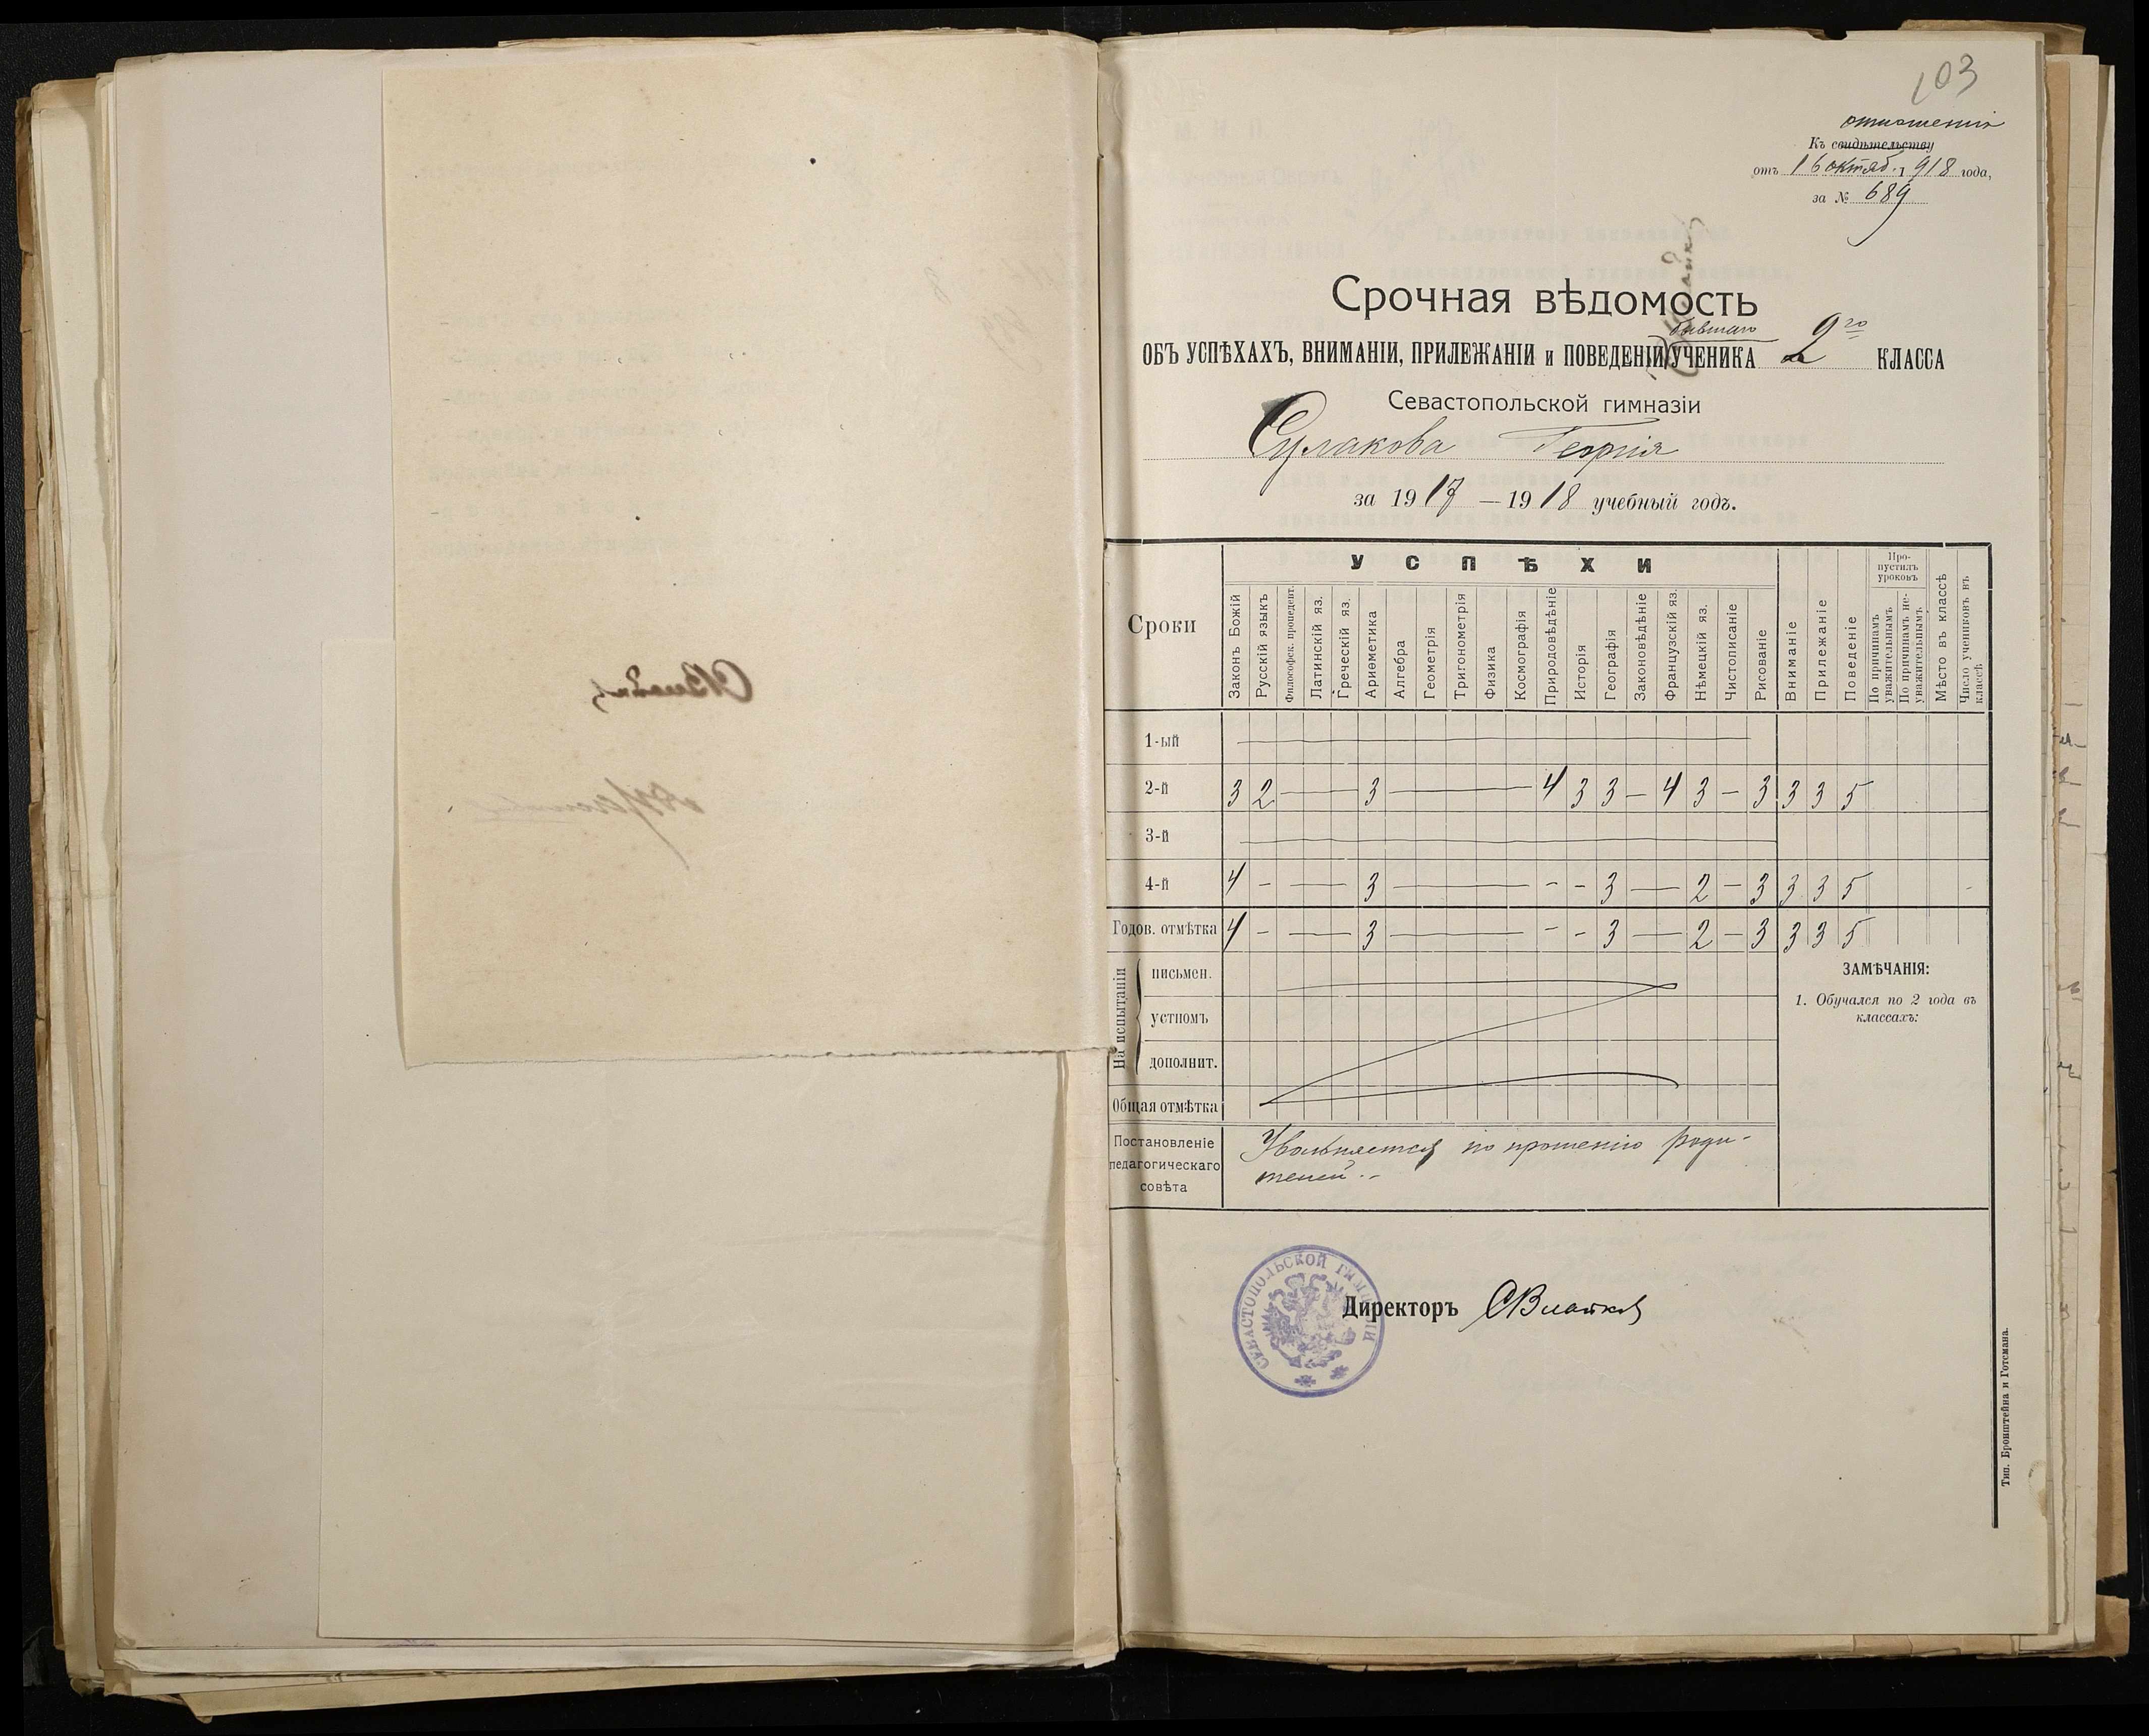 103
отношенію
Къ свидѣтельству
отъ 16 октяб. 1918 года,
за № 689
Срочная вѣдомость
бывшаго 2го
ОБЪ УСПѢХАХЪ, ВНИМАНІИ, ПРИЛЕЖАНІИ и ПОВЕДЕНІИ УЧЕНИКА КЛАССА
Севастопольской гимназіи
Сулакова Георгія
за 1917 — 1918 учебный годъ.
Сроки
УСПѢХИ
Законъ Божій
Русскій языкъ
Философск. пропедевт.
Латинскій яз.
Греческій яз.
Ариѳметика
Алгебра
Геометрія
Тригонометрія
Физика
Космографія
Природовѣдѣніе
Исторія
Географія
Законовѣдѣніе
Французскій яз.
Нѣмецкій яз.
Чистописаніе
Рисованіе
Вниманіе
Прилежаніе
Поведеніе
Про-
пустилъ
уроковъ
По причинамъ
уважительнымъ
По причинамъ не-
уважительнымъ
Мѣсто въ классѣ
Число учениковъ въ
классѣ
1-ый —
2-й 3 2 — 3 — 4 3 3 — 4 3 — 3 3 3 5
3-й —
4-й 4 - — 3 — - - 3 — 2 — 3 3 3 5
Годов. отмѣтка 4 - — 3 — - - 3 — 2 — 3 3 3 5
На испытаніи
письмен.
устномъ
дополнит.
Общая отмѣтка
ЗАМѢЧАНІЯ:
1. Обучался по 2 года въ
классахъ:
Постановленіе
педагогическаго
совѣта
Увольняется по прошенію роди-
телей.-
СЕВАСТОПОЛЬСКОЙ ГИМНАЗІИ
Директоръ
Тип. Бронштейна и Готсмана.